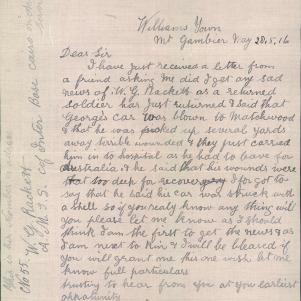 Williams Town
Mt Gambier May 28.5.16
Dear Sir
I have just received a letter from
a friend asking me did I get any sad
news of W. G. Rackett as a returned
soldier has just returned & said that
George's car was blown to Matchwood
& that he was picked up several yards
away terrible wounded & they just carried
him in to hospital as he had to leave for
Australia, & he said that his wounds were
that too deep for recovery I forgot to
say that he said his car was struck with
a Shell so if you really know any thing will
you please let me know as I should
think I am the first to get the news as
I am next to Kin & I will be pleased if
you will grant me this one wish let me
know full particulars
trusting to hear from you at your earliest
opportunity
W. G. Rackett
A. M. T. S. c/o Inter Base Cairo